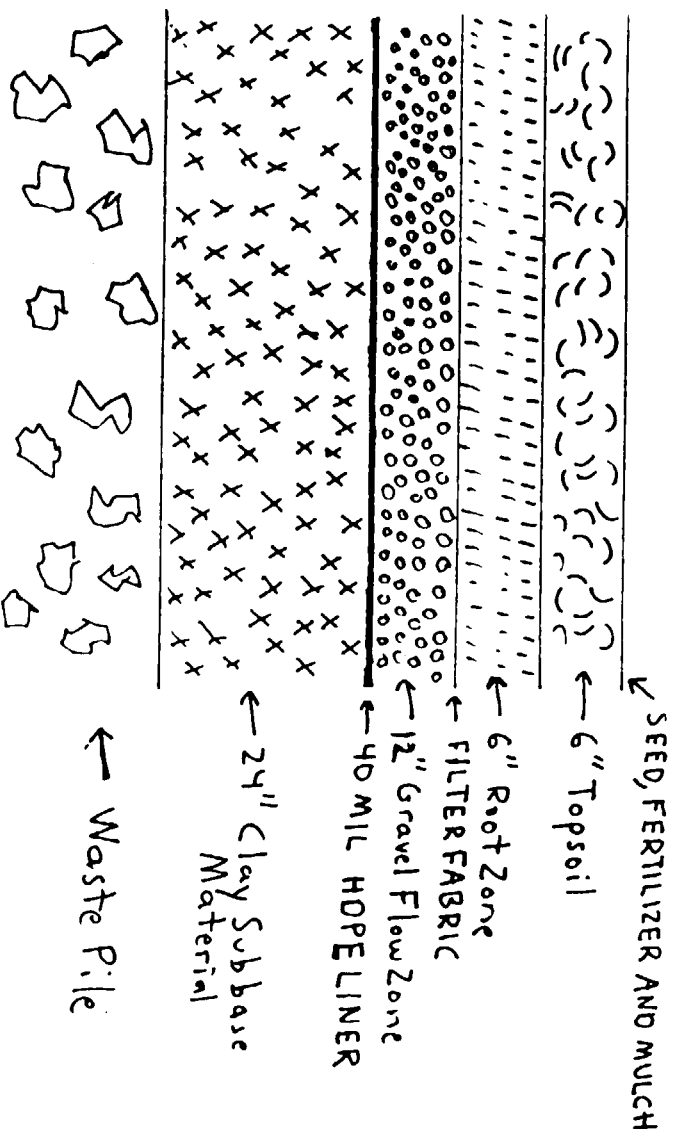 SEED, FERTILIZER AND MULCH
6" Topsoil
6" Root Zone
FILTER FABRIC
12" Gravel Flow Zone
40 MIL HDPE LINER
24" Clay Subbase
Material
Waste Pile